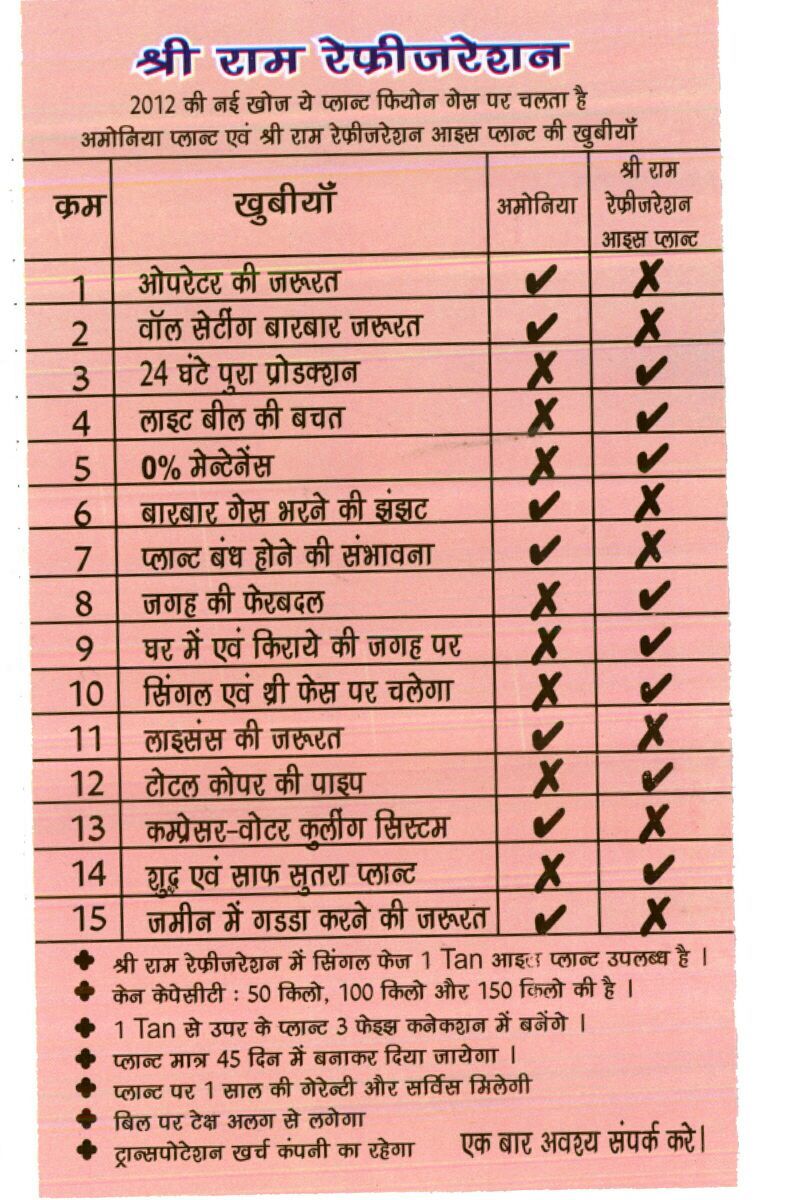 श्री राम रेफ्रीजरेशन
2012 की नई खोज ये प्लान्ट फियोन गेस पर चलता है
अमोनिया प्लान्ट एवं श्री राम रेफ्रीजरेशन आइस प्लान्ट की खुबीयाँ
क्रम खुबीयाँ अमोनिया श्री राम रेफ्रीजरेशन आइस प्लान्ट
1 ओपरेटर की जरूरत ✔ ✘
2 वॉल सेटींग बारबार जरूरत ✔ ✘
3 24 घंटे पुरा प्रोडक्शन ✘ ✔
4 लाइट बील की बचत ✘ ✔
5 0% मेन्टेनेंस ✘ ✔
6 बारबार गेस भरने की झंझट ✔ ✘
7 प्लान्ट बंध होने की संभावना ✔ ✘
8 जगह की फेरबदल ✘ ✔
9 घर में एवं किराये की जगह पर ✘ ✔
10 सिंगल एवं थ्री फेस पर चलेगा ✘ ✔
11 लाइसंस की जरूरत ✔ ✘
12 टोटल कोपर की पाइप ✘ ✔
13 कम्प्रेसर-वोटर कुलींग सिस्टम ✔ ✘
14 शुद्ध एवं साफ सुतरा प्लान्ट ✘ ✔
15 जमीन में गडडा करने की जरूरत ✔ ✘
श्री राम रेफ्रीजरेशन में सिंगल फेज 1 Tan आइस प्लान्ट उपलब्ध है ।
केन केपेसीटी : 50 किलो, 100 किलो और 150 किलो की है ।
1 Tan से उपर के प्लान्ट 3 फेइझ कनेकशन में बनेंगे ।
प्लान्ट मात्र 45 दिन में बनाकर दिया जायेगा ।
प्लान्ट पर 1 साल की गेरेन्टी और सर्विस मिलेगी
बिल पर टेक्ष अलग से लगेगा
ट्रान्सपोटेशन खर्च कंपनी का रहेगा एक बार अवश्य संपर्क करे।